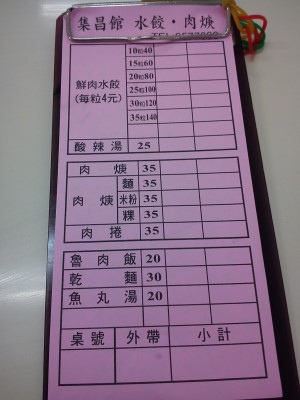 集昌館 水餃·肉焿
鮮肉水餃
(每粒4元)
10粒40
15粒60
20粒80
25粒100
30粒120
35粒140
酸辣湯 25
肉焿 35
肉焿
麵 35
米粉 35
粿 35
肉捲 35
魯肉飯 20
乾麵 30
魚丸湯 20
桌號 外帶 小計